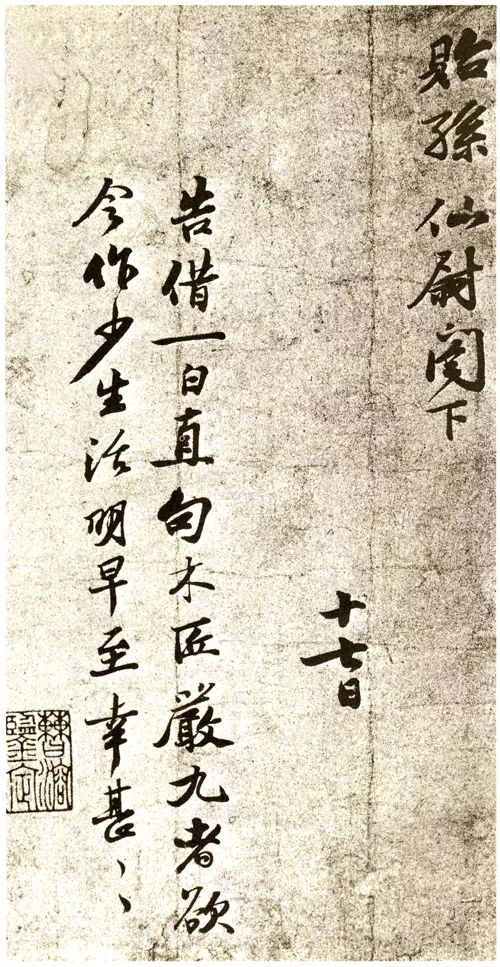 貽孫 仙尉閣下
十七日
告借一日直句木匠嚴九者欲
令作少生活明早至幸甚〻
曹溶
鑒定